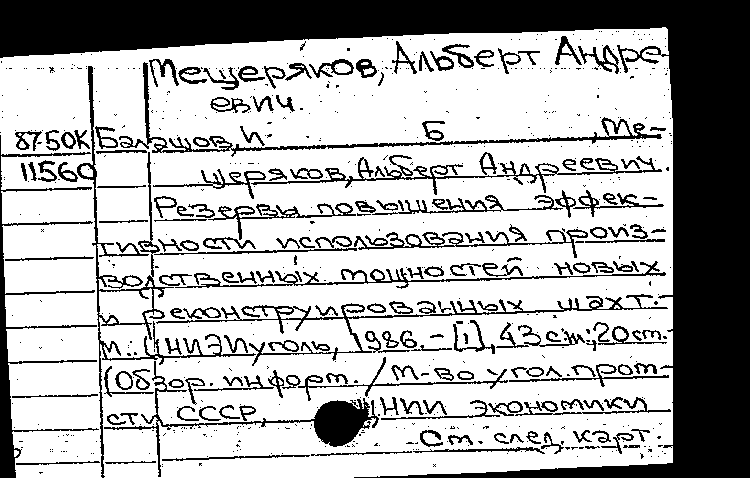 Мещеряков, Альберт Андре-
евич.
87-50К Балашов, И. Б , Ме-
11560 щеряков, Альберт Андреевич.
Резервы повышения эффек-
тивности использования произ-
водственных мощностей новых
и реконструированных шахт.-
М.: ЦНИЭИуголь, 1986.-[1], 43 с.; 20 см.-
(Обзор. информ. / М-во угол. пром-
сти СССР, ЦНИИ экономики
См. след. карт.